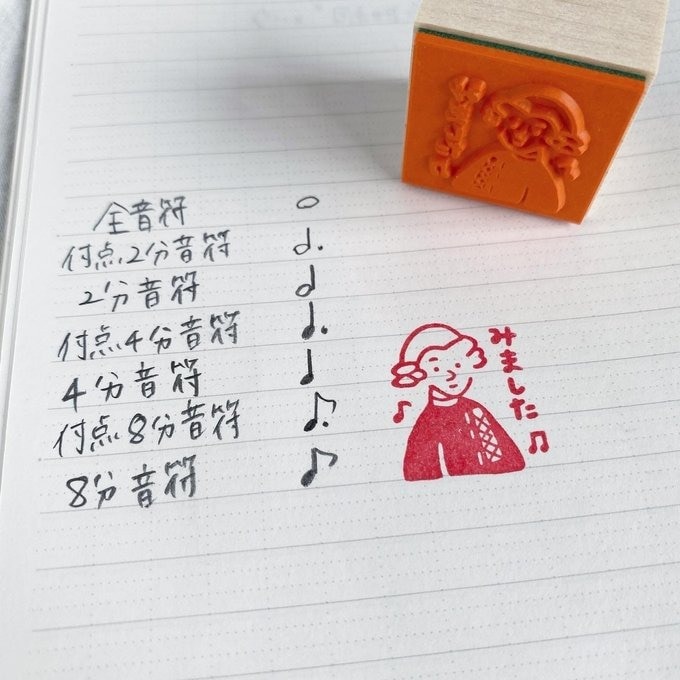 全音符
付点2分音符
2分音符
付点4分音符
4分音符
付点8分音符
8分音符
みました